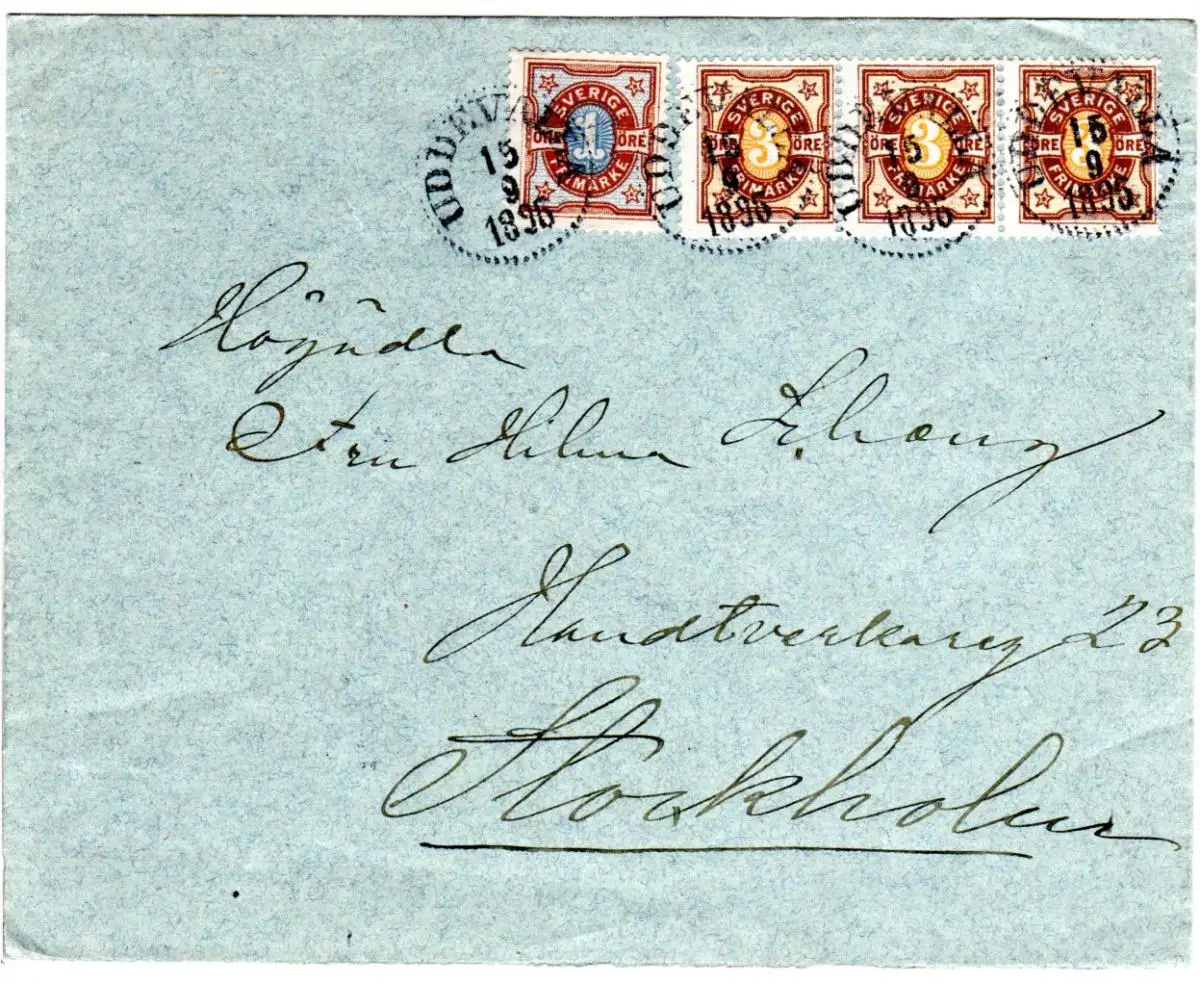 SVERIGE
ÖRE 1 ÖRE
FRIMÄRKE
SVERIGE
ÖRE 3 ÖRE
FRIMÄRKE
SVERIGE
ÖRE 3 ÖRE
FRIMÄRKE
ÖRE 3 ÖRE
FRIMÄRKE
UDDEVALLA
15
9
1896
UDDEVALLA
15
9
1896
UDDEVALLA
15
9
1896
UDDEVALLA
15
9
1896
Högädla
Fru Hilma
Handtverkareg 23
Stockholm